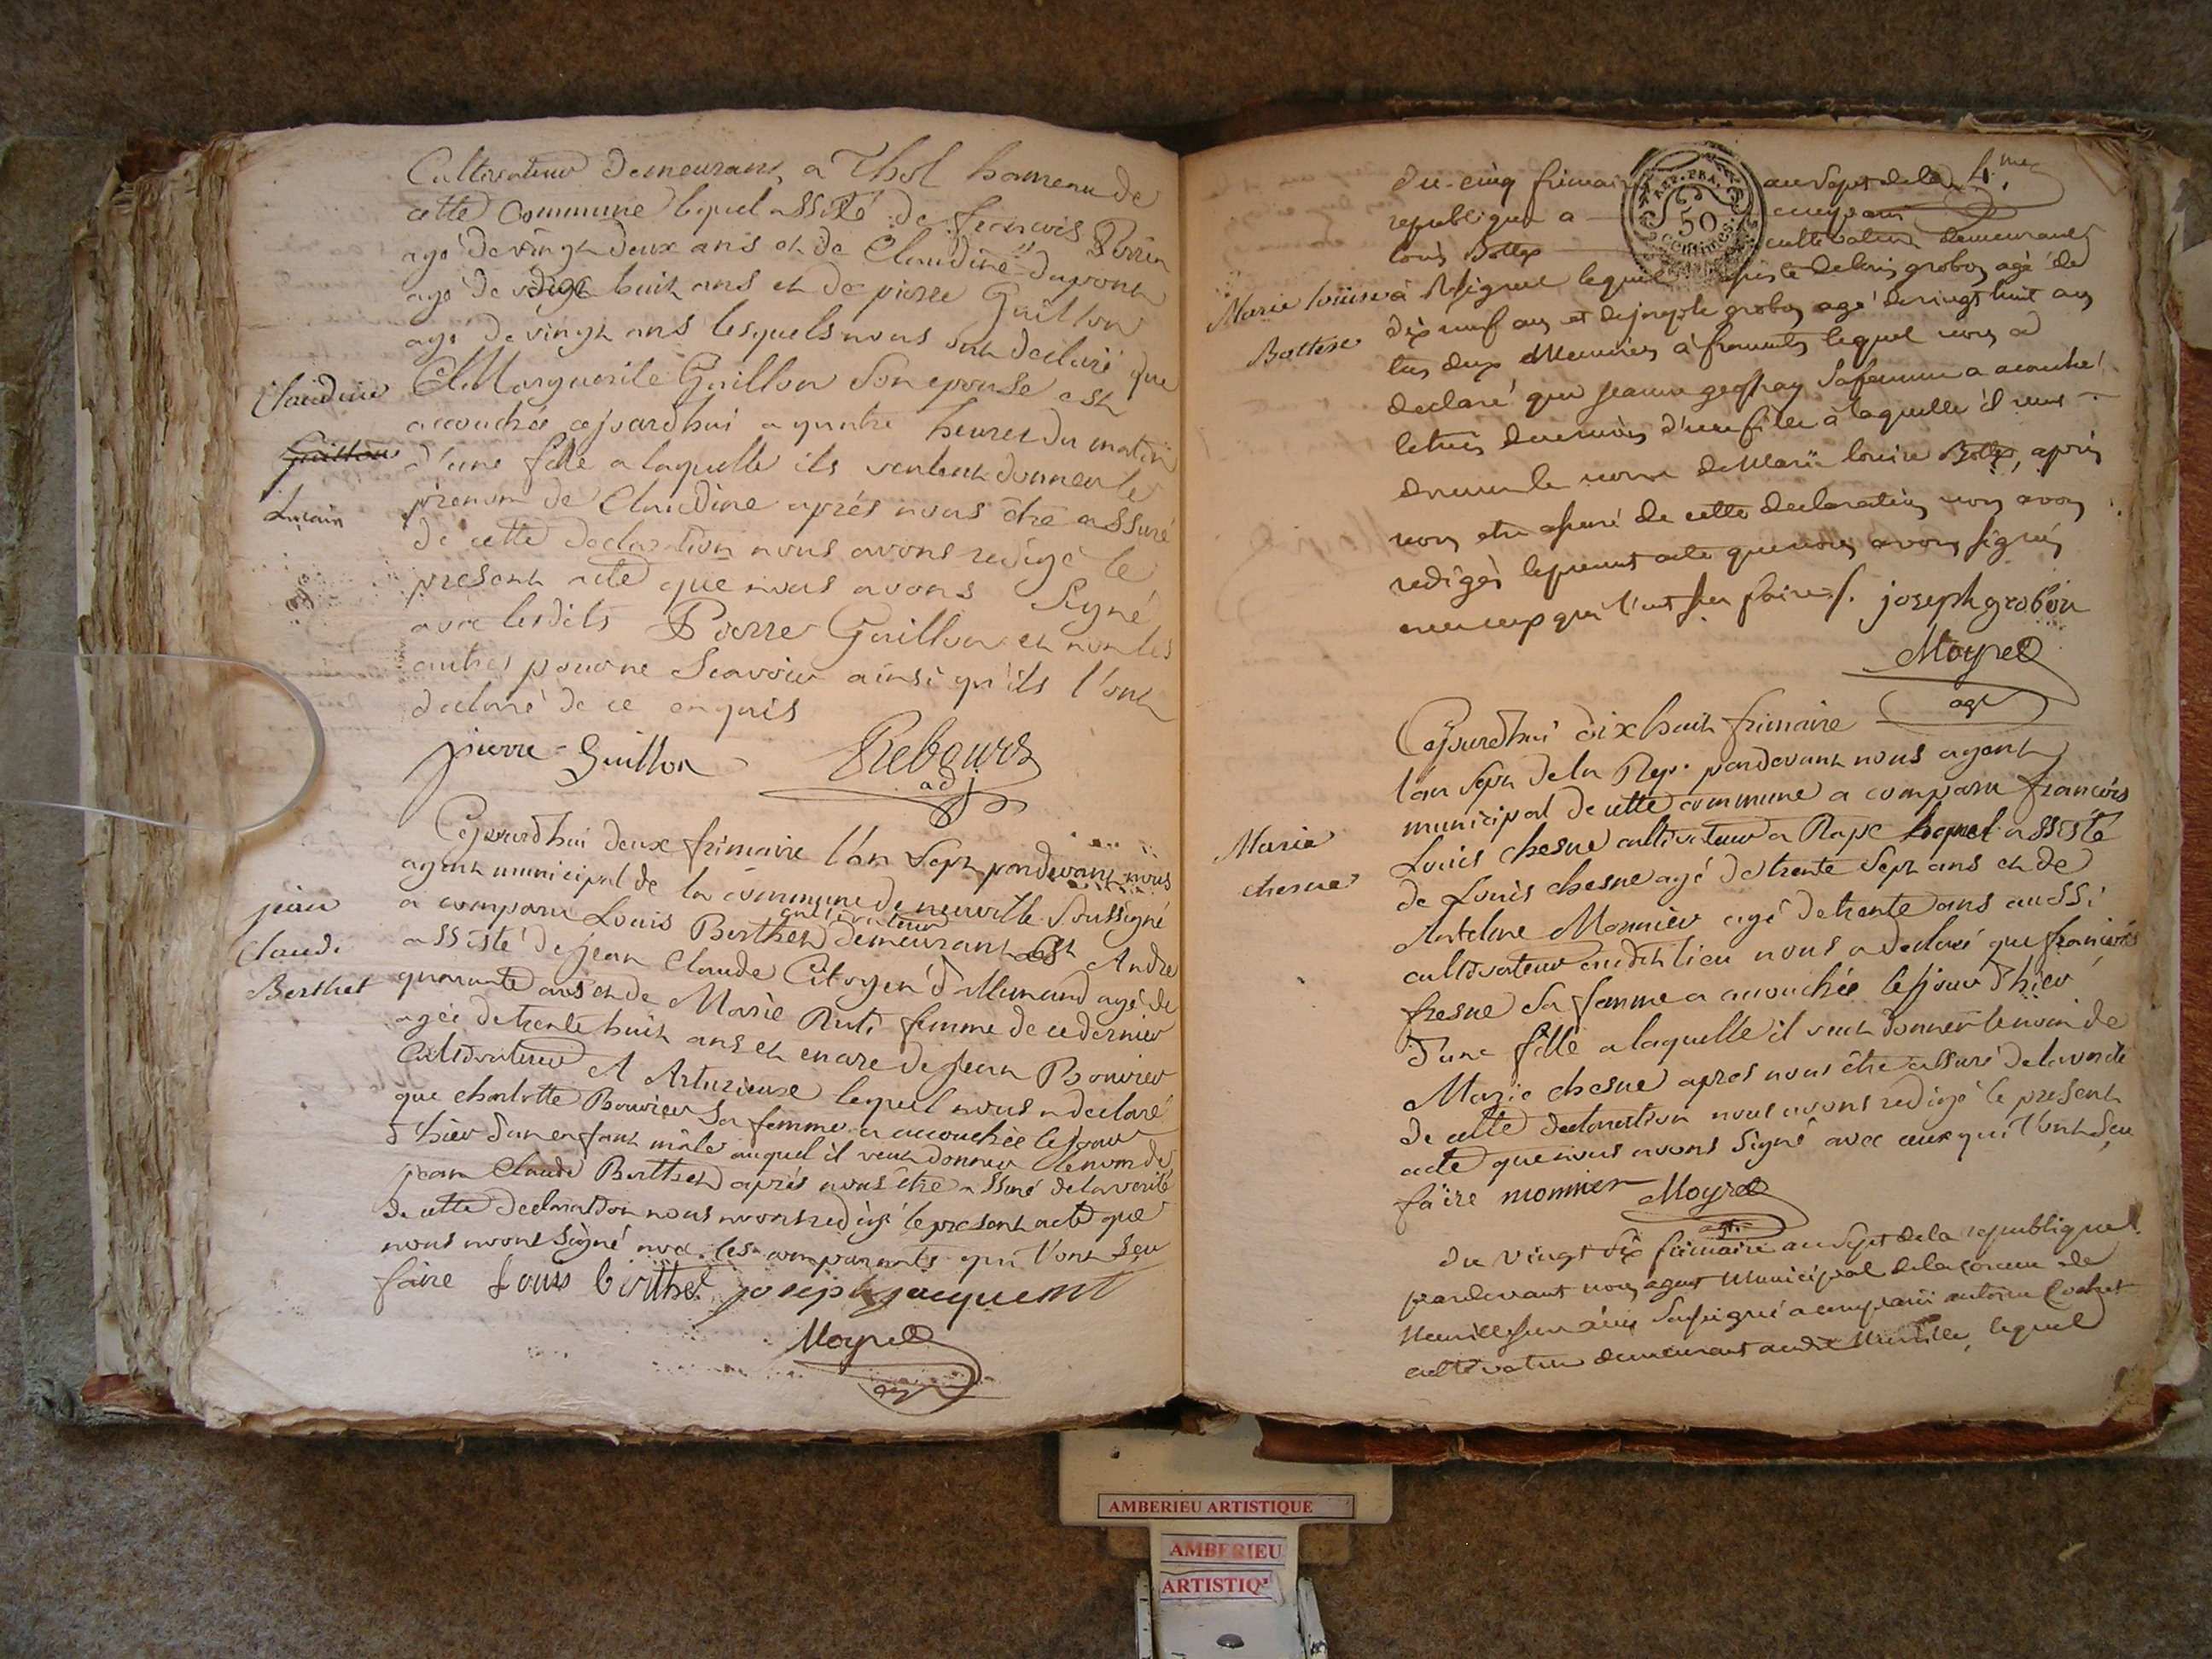 Cultivateur demeurant a Thol hameau de
cette commune lequel assisté de francois Perrin
agé de vingt deux ans et de Claudine dupont
agé de vingt huit ans et de pierre Guillon
agé de vingt ans lesquels nous ont declaré que
Marguerite Guillon Son epouse est
accouchée cejourdhui a quatre heures du matin
d'une fille a laquelle ils veulent donner le
prenom de Claudine aprés nous être assuré
de cette declaration nous avons redigé le
present acte que nous avons Signé
avec lesdits Pierre Guillon et non les
autres pour ne Scavoir ainsi qu'ils l'ont
declaré de ce enquis
pierre Guillon Rebours
adj
Claudine
Guillon
Cejourdhui deux frimaire l'an Sept pardevant nous
agent municipal de la commune de neuville Soussigné
a comparu Louis Berthet cultivateur demeurant a St André
assisté de jean Claude Citoyen d'Allemand agé de
quarante ans et de Marie Ruti femme de ce dernier
agée de trente huit ans et encore de Jean Bouvier
Cultivateur A Arturieuxe lequel nous a declaré
que charlotte Bouvier Sa femme a accouchée le jour
d'hier d'un enfant mâle auquel il veut donner le nom de
jean Claude Berthet aprés nous être assuré de la verité
de cette declaration nous avons redigé le present acte que
nous avons Signé avec les comparants qui l'ont Seu
faire Louis berthet joseph jacquemet
Moyret
agt
jean
Claude
Berthet
Du cinq frimaire an Sept de la
republique a comparu
louis cultivateur demeurant
à lequel assisté de louis grobon agé de
dix neuf ans et de joseph grobon agé de vingt huit ans
tous deux à lequel nous a
declaré que jeanne geoffray Sa femme a accouché
le d'une fille à laquelle il veut
donner le nom de Marie louise après
nous etre assuré de cette declaration nous avons
redigés le present acte que nous avons signés
avec ceux qui l'ont Seu faire joseph grobon
Moyret
agt
Marie louise
Cejourdhui dix huit frimaire
l'an Sept de la Rep. pardevant nous agent
municipal de cette commune a comparu francois
Louis chesne cultivateur a Rape lequel assisté
de Louis chesne agé de trente Sept ans et de
Antelme Monnier agé de trente ans aussi
cultivateur audit lieu nous a declaré que francoise
fresne Sa femme a accouchée le jour d'hier
d'une fille a laquelle il veut donner le nom de
Marie chesne apres nous être assuré de la verité
de cette declaration nous avons redigé le present
acte que nous avons Signé avec ceux qui l'ont Seu
faire monnier Moyret
agt
Marie
chesne
du vingt Six frimaire an Sept de la republique
pardevant nous agent Municipal de la comune de
Neuville Sur ain Sousigné a comparu antoine Cochet
cultivateur demeurant audit Neuville, lequel
REP. FRA.
50
centimes
AMBERIEU ARTISTIQUE
AMBERIEU
ARTISTIQ